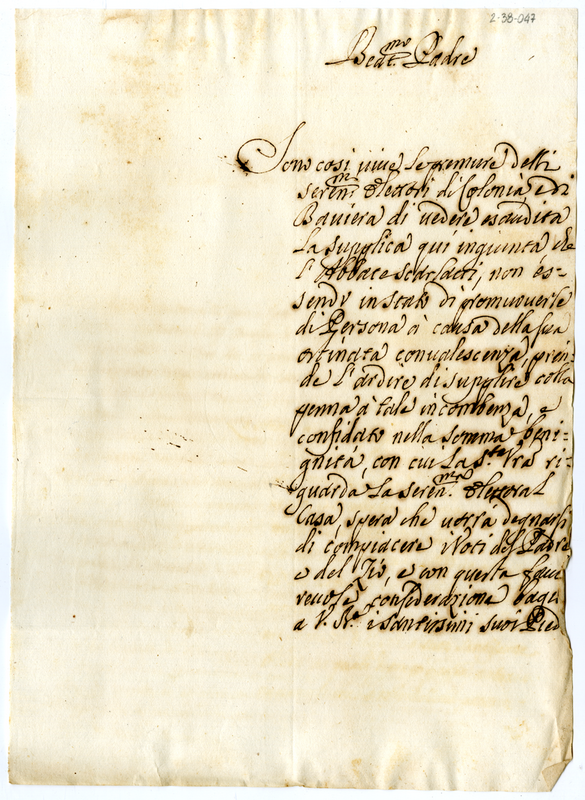 2-38-047
Beat.mo Padre
Sono così vive le premure delli
seren.mi Elettori di Colonia, e di
Baviera di vedere esaudita
la supplica qui ingiunta che
l'Abbate Scarlatti, non es-
sendo in stato di promuoverle
di Persona à causa della sua
ostinata convalescenza, pren-
de l'ardire di supplire colla
penna à tale incombenza, e
confidato nella somma beni-
gnità, con cui la S.tà V.ra ri-
guarda la seren.ma Elettoral
Casa, spera che vorrà degnarsi
di compiacere i Voti del Padre
e del Zio, e con questa favo
revole considerazione bagia
a V. S.tà i santissimi suoi Pied